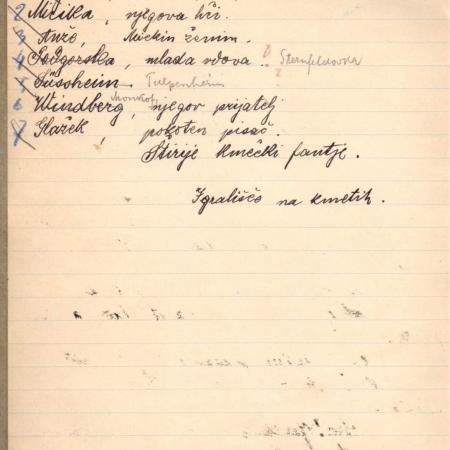 2 Micika, njegova hči.
3 Anže, Mickin ženin.
4 Podgorska, mlada vdova. Sternfeldovka
5 Süssheim Tulpenheim
6 Windberg, njegov prijatelj
7 Glažek, pokoten pisač.
Štirije kmečki fantje.
Igrališčo na kmetih.